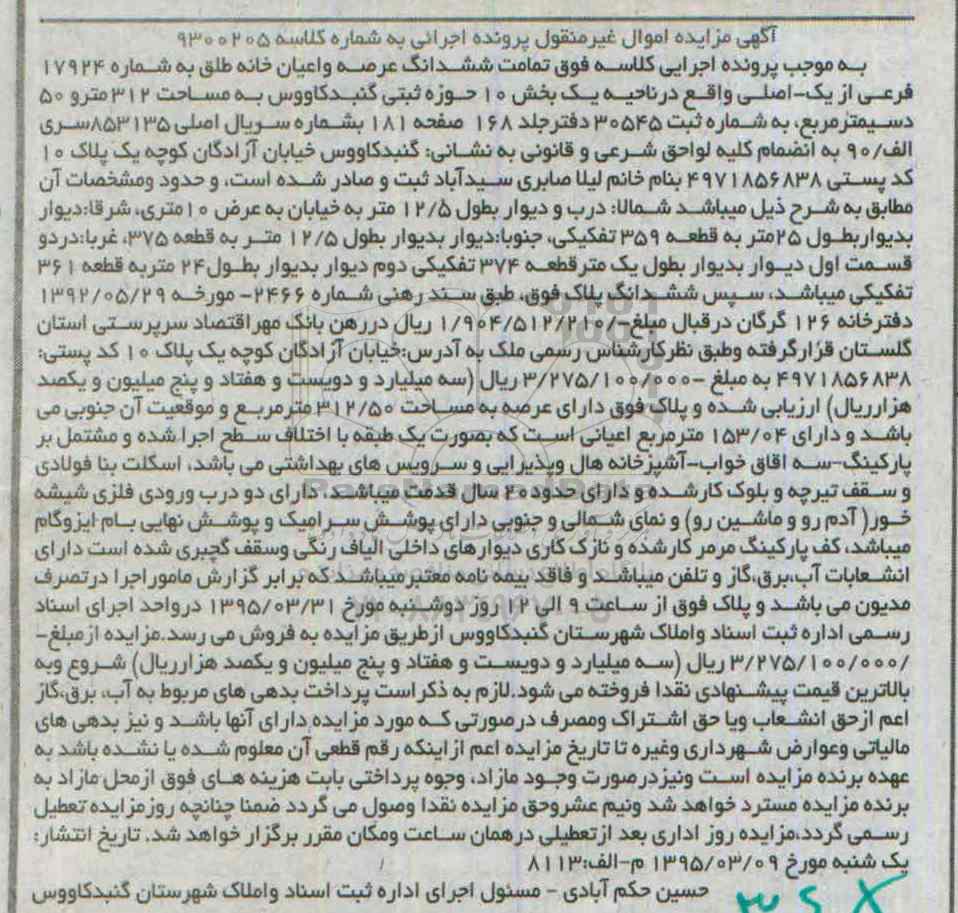 آگهی مزایده اموال غیرمنقول پرونده اجرائی به شماره کلاسه ۹۳۰۰۲۰۵
به موجب پرونده اجرایی کلاسه فوق تمامت ششدانگ عرصه واعیان خانه طلق به شماره ۱۷۹۲۴
فرعی از یک-اصلی واقع درناحیه یک بخش ۱۰ حوزه ثبتی گنبدکاووس به مساحت ۳۱۲مترو ۵۰
دسیمترمربع، به شماره ثبت ۳۰۵۴۵ دفترجلد ۱۶۸ صفحه ۱۸۱ بشماره سریال اصلی ۸۵۳۱۳۵سری
الف/۹۰ به انضمام کلیه لواحق شرعی و قانونی به نشانی: گنبدکاووس خیابان آزادگان کوچه یک پلاک ۱۰
کد پستی ۴۹۷۱۸۵۶۸۳۸ بنام خانم لیلا صابری سیدآباد ثبت و صادر شده است، و حدود ومشخصات آن
مطابق به شرح ذیل میباشد شمالا: درب و دیوار بطول ۱۲/۵ متر به خیابان به عرض ۱۰متری، شرقا:دیوار
بدیواربطول ۲۵متر به قطعه ۳۵۹ تفکیکی، جنوبا:دیوار بدیوار بطول ۱۲/۵ متر به قطعه ۳۷۵، غربا:دردو
قسمت اول دیوار بدیوار بطول یک مترقطعه ۳۷۴ تفکیکی دوم دیوار بدیوار بطول۲۴ متربه قطعه ۳۶۱
تفکیکی میباشد، سپس ششدانگ پلاک فوق، طبق سند رهنی شماره ۲۴۶۶- مورخه ۱۳۹۲/۰۵/۲۹
دفترخانه ۱۲۶ گرگان درقبال مبلغ-/۱/۹۰۴/۵۱۲/۲۱۰ ریال دررهن بانک مهراقتصاد سرپرستی استان
گلستان قرارگرفته وطبق نظرکارشناس رسمی ملک به آدرس:خیابان آزادگان کوچه یک پلاک ۱۰ کد پستی:
۴۹۷۱۸۵۶۸۳۸ به مبلغ -۳/۲۷۵/۱۰۰/۰۰۰ ریال (سه میلیارد و دویست و هفتاد و پنج میلیون و یکصد
هزارریال) ارزیابی شده و پلاک فوق دارای عرصه به مساحت ۳۱۲/۵۰ مترمربع و موقعیت آن جنوبی می
باشد و دارای ۱۵۳/۰۴ مترمربع اعیانی است که بصورت یک طبقه با اختلاف سطح اجرا شده و مشتمل بر
پارکینگ-سه اقاق خواب-آشپزخانه هال وپذیرایی و سرویس های بهداشتی می باشد، اسکلت بنا فولادی
و سقف تیرچه و بلوک کارشده و دارای حدود۲۰ سال قدمت میباشد. دارای دو درب ورودی فلزی شیشه
خور( آدم رو و ماشین رو) و نمای شمالی و جنوبی دارای پوشش سرامیک و پوشش نهایی بام ایزوگام
میباشد، کف پارکینگ مرمر کارشده و نازک کاری دیوارهای داخلی الیاف رنگی وسقف گچبری شده است دارای
انشعابات آب،برق،گاز و تلفن میباشد و فاقد بیمه نامه معتبرمیباشد که برابر گزارش ماموراجرا درتصرف
مدیون می باشد و پلاک فوق از ساعت ۹ الی ۱۲ روز دوشنبه مورخ ۱۳۹۵/۰۳/۳۱ درواحد اجرای اسناد
رسمی اداره ثبت اسناد واملاک شهرستان گنبدکاووس ازطریق مزایده به فروش می رسد.مزایده ازمبلغ-
/۳/۲۷۵/۱۰۰/۰۰۰ ریال (سه میلیارد و دویست و هفتاد و پنج میلیون و یکصد هزارریال) شروع وبه
بالاترین قیمت پیشنهادی نقدا فروخته می شود.لازم به ذکر است پرداخت بدهی های مربوط به آب، برق،گاز
اعم ازحق انشعاب ویا حق اشتراک ومصرف درصورتی که مورد مزایده دارای آنها باشد و نیز بدهی های
مالیاتی وعوارض شهرداری وغیره تا تاریخ مزایده اعم ازاینکه رقم قطعی آن معلوم شده یا نشده باشد به
عهده برنده مزایده است ونیزدرصورت وجود مازاد، وجوه پرداختی بابت هزینه های فوق ازمحل مازاد به
برنده مزایده مسترد خواهد شد ونیم عشروحق مزایده نقدا وصول می گردد ضمنا چنانچه روزمزایده تعطیل
رسمی گردد،مزایده روز اداری بعد ازتعطیلی درهمان ساعت ومکان مقرر برگزار خواهد شد. تاریخ انتشار:
یک شنبه مورخ ۱۳۹۵/۰۳/۰۹ م-الف:۸۱۱۳
حسین حکم آبادی - مسئول اجرای اداره ثبت اسناد واملاک شهرستان گنبدکاووس